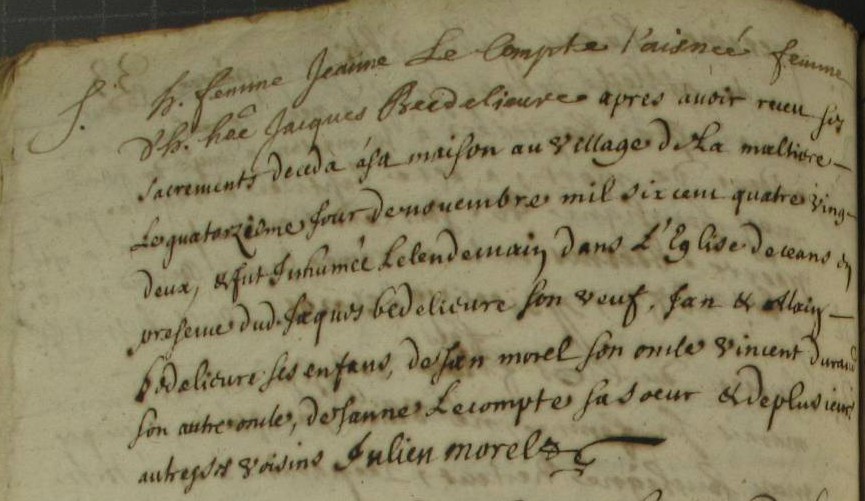 S. h. femme Jeanne Le Compte l'aisneé femme
d'h. hõe Jacques Beedelieure apres auoir receu ses
sacrements deceda à sa maison au village de La maltiere
Le quatorziesme Jour de nouembre mil six cent quatre ving
deux, & fut Inhumeé Lelendemain dans L'Eglise deceans en
presence dud. Jaques bedelieure son veuf, Jan & allain
bedelieure ses enfans, de Jan morel son oncle vincent durand
son autre oncle, de Janne Lecompte sa soeur & deplusieurs
autres ses voisins Julien morel